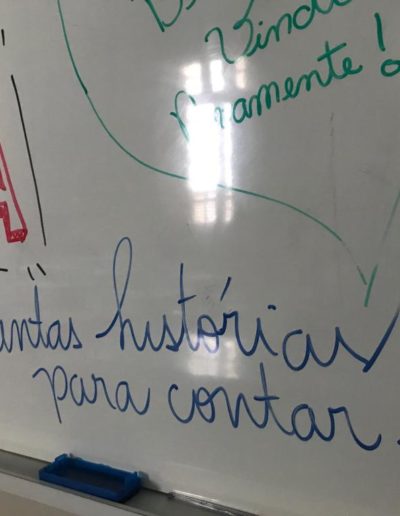 Vindo
novamente!
antas histórias
para contar.